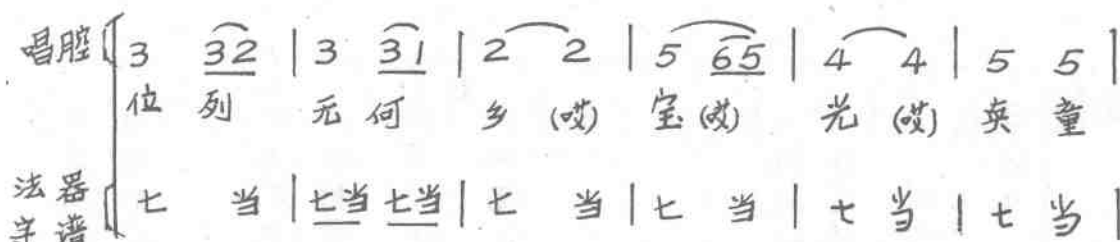 唱腔 3 32 | 3 31 | 2 2 | 5 65 | 4 4 | 5 5 |
位 列 无 何 乡 (哎) 宝 (哎) 光 (哎) 英 童
法器 七 当 | 七当 七当 | 七 当 | 七 当 | 七 当 | 七 当 |
字谱